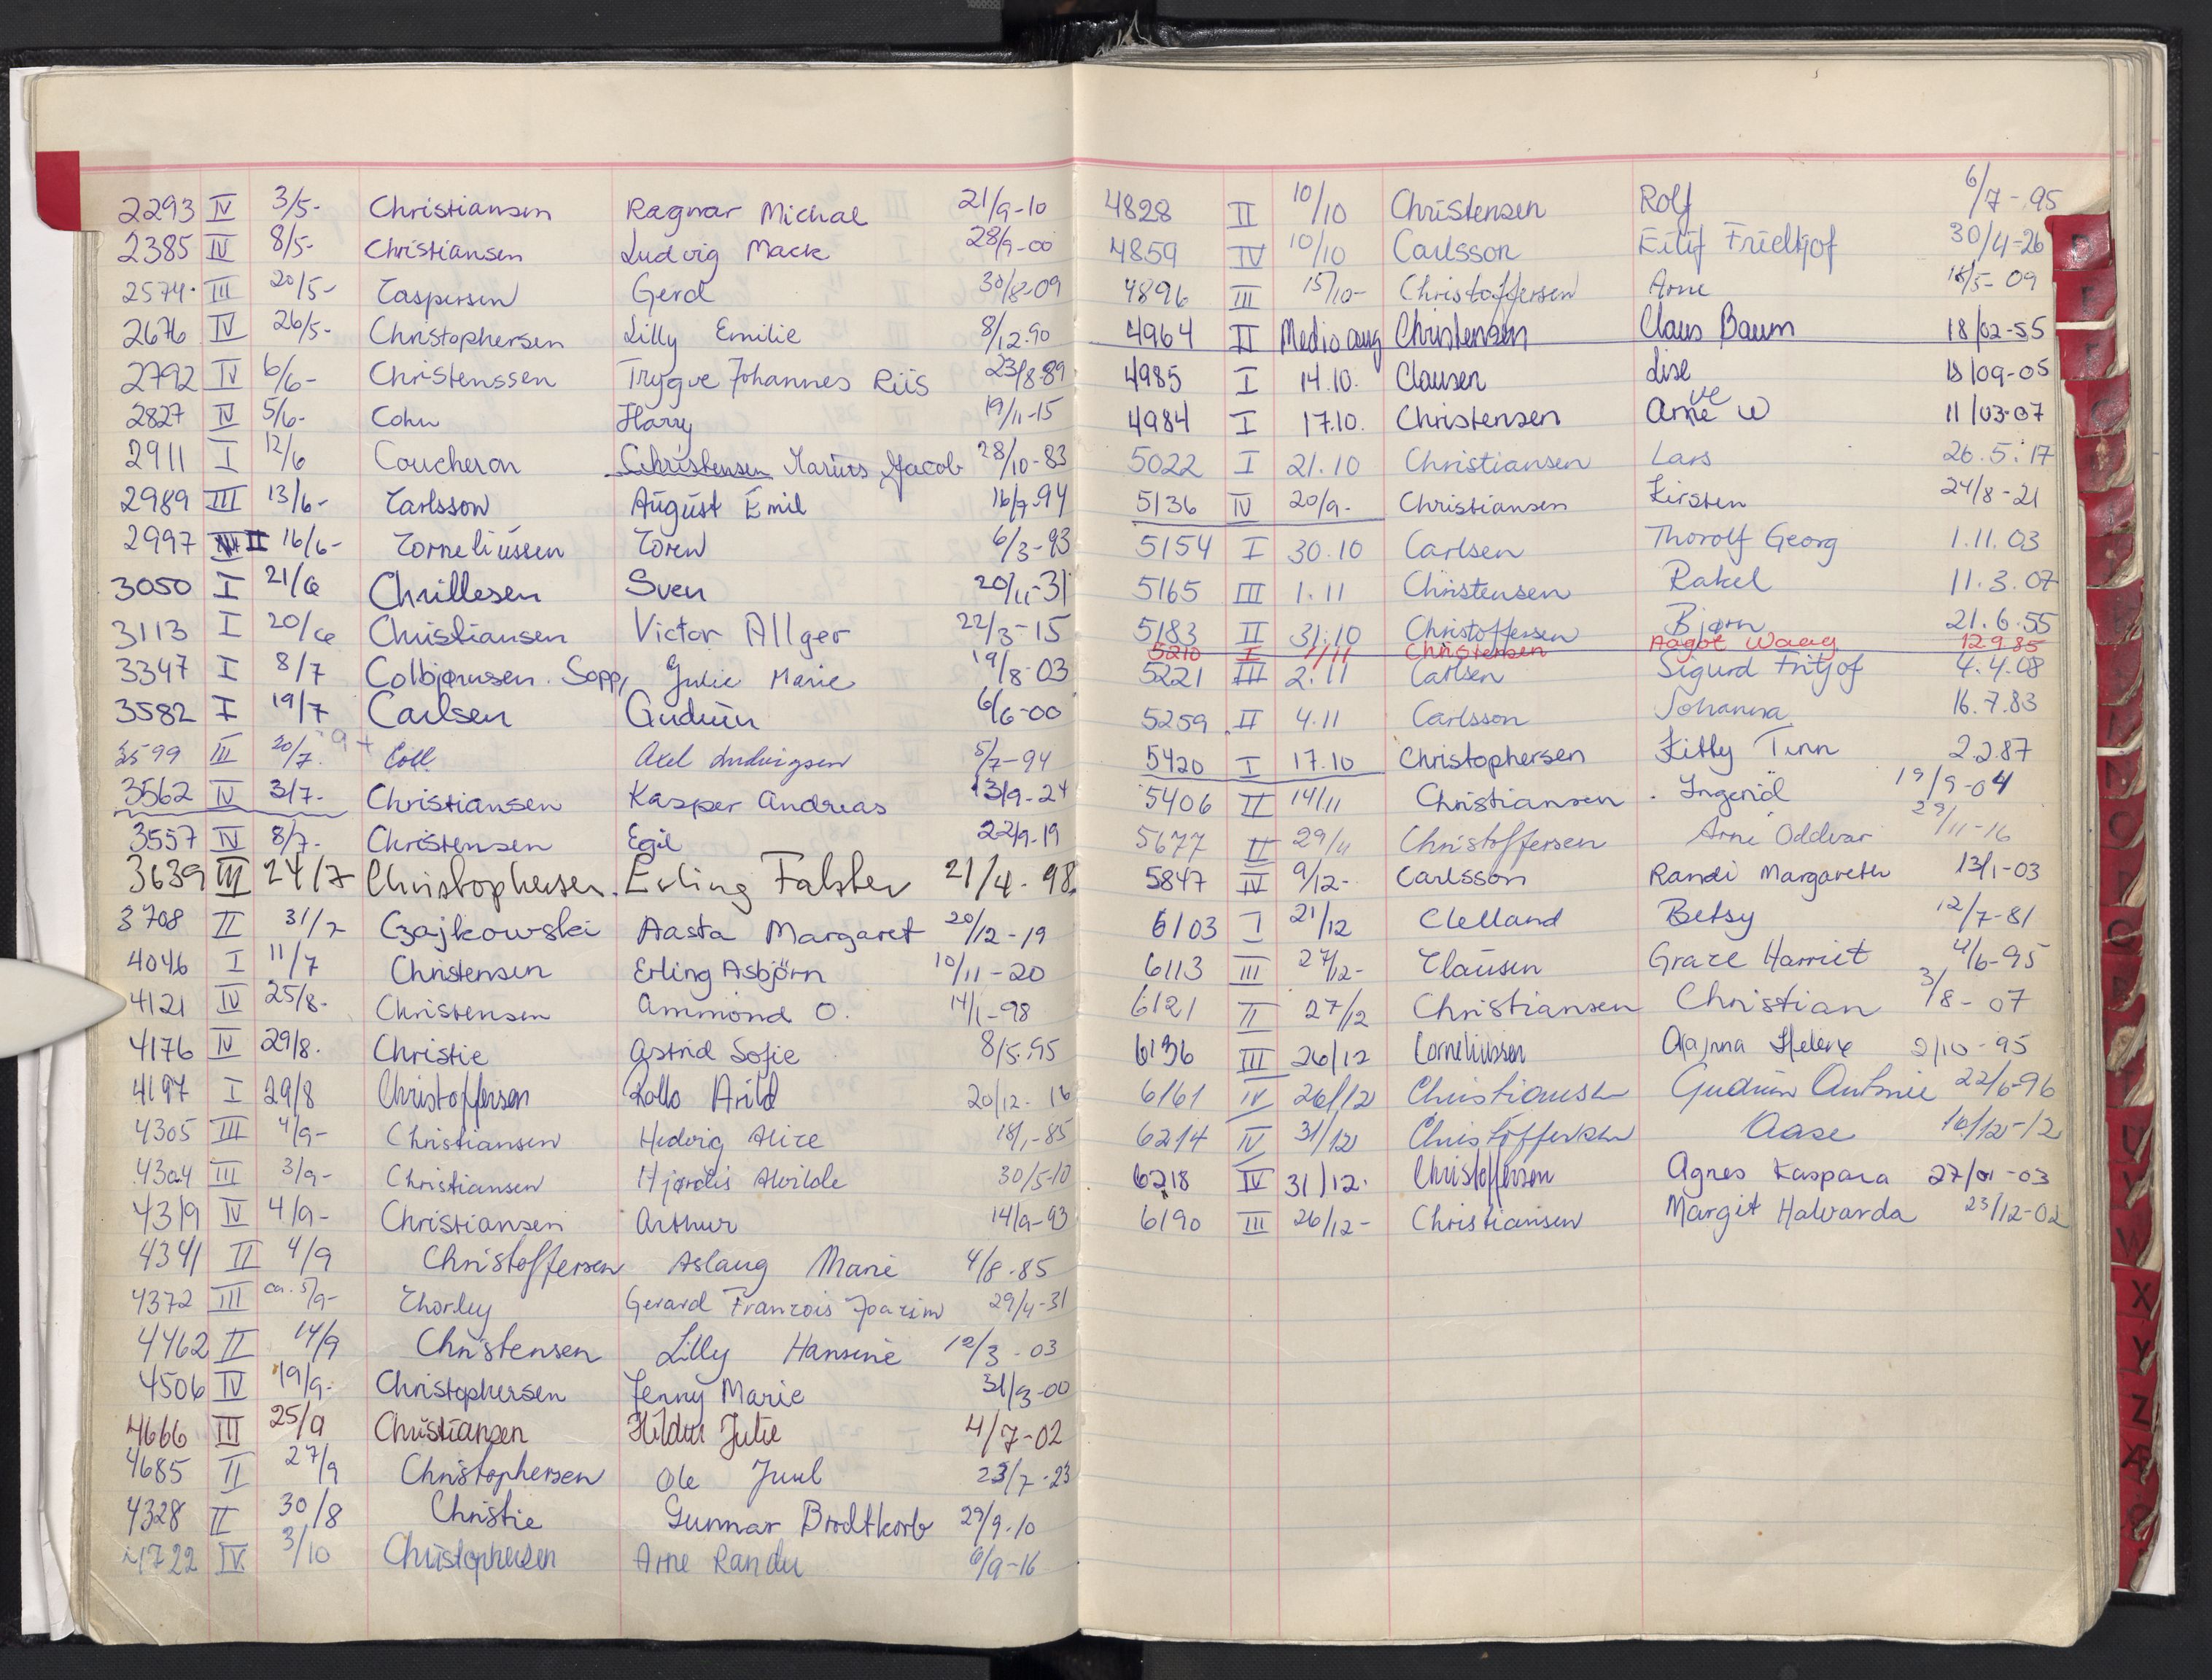 2293 IV 3/5- Christiansen Ragnar Michal 21/9-10
2385 IV 8/5- Christiansen Ludvig Mack 28/9-00
2574 III 20/5- Caspersen Gerd 30/8-09
2676 IV 26/5- Christophersen Lilly Emilie 8/12-90
2792 IV 6/6- Christenssen Trygve Johannes Riis 23/8-89
2827 IV 5/6- Cohn Harry 19/11-15
2911 I 12/6 Coucheron Christensen Marius Jacob 28/10-83
2989 III 13/6- Carlsson August Emil 16/7-94
2997 II 16/6- Corneliussen Coren 6/3-93
3050 I 21/6 Chrillesen Sven 20/11-31
3113 I 20/6 Christiansen Victor Allger 22/3-15
3347 I 8/7 Colbjørnsen. Sopp, Julie Marie 19/8-03
3582 I 19/7 Carlsen Gudrun 6/6-00
3599 III 20/7. Coll Axel Ludvigsen 5/7-94
3562 IV 3/7- Christiansen Kasper Andreas 13/9-24
3557 IV 8/7- Christensen Egil 22/9-19
3639 III 24/7 Christophersen. Erling Falster 21/4-98.
3708 II 31/7 Czajkowski Aasta Margaret 20/12-19
4046 I 11/7 Christensen Erling Asbjörn 10/11-20
4121 IV 25/8- Christensen Ammond O. 14/1-98
4176 IV 29/8. Christie Astrid Sofie 8/5-95
4197 I 29/8 Christoffersen Rollo Arild 20/12-16
4305 III 4/9- Christiansen Hedvig Alice 18/1-85
4304 III 3/9- Christiansen Hjørdis Alvilde 30/5-10
4319 IV 4/9- Christiansen Arthur 14/9-93
4341 II 4/9 Christoffersen Aslaug Marie 4/8-85
4372 III ca. 5/9- Chorley Gerard Francois Joacim 29/4-31
4462 II 14/9 Christensen Lilly Hansine 12/3-03
4506 IV 19/9- Christophersen Jenny Marie 31/3-00
4666 III 25/9 Christiansen Hildur Julie 4/7-02
4685 II 27/9 Christophersen Ole Juul 23/7-23
4328 II 30/8 Christie Gunnar Brodtkorb 29/9-10
4722 IV 3/10 Christophersen Arne Randu 6/9-16
4828 II 10/10 Christensen Rolf 6/7-95
4859 IV 10/10 Carlsson Eilif Fridtjof 30/4-26
4896 III 15/10- Christoffersen Arne 18/5-09
4964 II Medio aug Christensen Claus Baum 18/02-55
4985 I 14.10. Clausen Lise 18/09-05
4984 I 17.10. Christensen Arne W 11/03-07
5022 I 21.10 Christiansen Lars 26.5.17
5136 IV 20/9- Christiansen Kirsten 24/8-21
5154 I 30.10 Carlsen Thorolf Georg 1.11.03
5165 III 1.11 Christensen Rakel 11.3.07
5183 II 31.10 Christoffersen Bjørn 21.6.55
5210 I 1/11 Christensen Aagot Waag 12.9.85
5221 III 2.11 Carlsen Sigurd Fritjof 4.4.08
5259 II 4.11 Carlsson Johanna 16.7.83
5420 I 17.10 Christophersen Kitty Tinn 2.2.87
5406 II 14/11 Christiansen Ingerid 19/9-04
5677 II 29/11 Christoffersen Arne Oddvar 29/11-16
5847 IV 9/12- Carlsson Randi Margareth 13/1-03
6103 I 21/12 Clelland Betsy 12/7-81
6113 III 27/12- Clausen Grace Harriet 4/6-95
6121 II 27/12 Christiansen Christian 3/8-07
6136 III 26/12 Corneliussen Helene 2/10-95
6161 IV 26/12 Christiansen Gudrun Antonie 22/6-96
6214 IV 31/12 Christoffersen Aase 16/12-12
6218 IV 31/12. Christoffersen Agnes Kaspara 27/01-03
6190 III 26/12- Christiansen Margit Halvarda 23/12-02
D
X
Y
Z